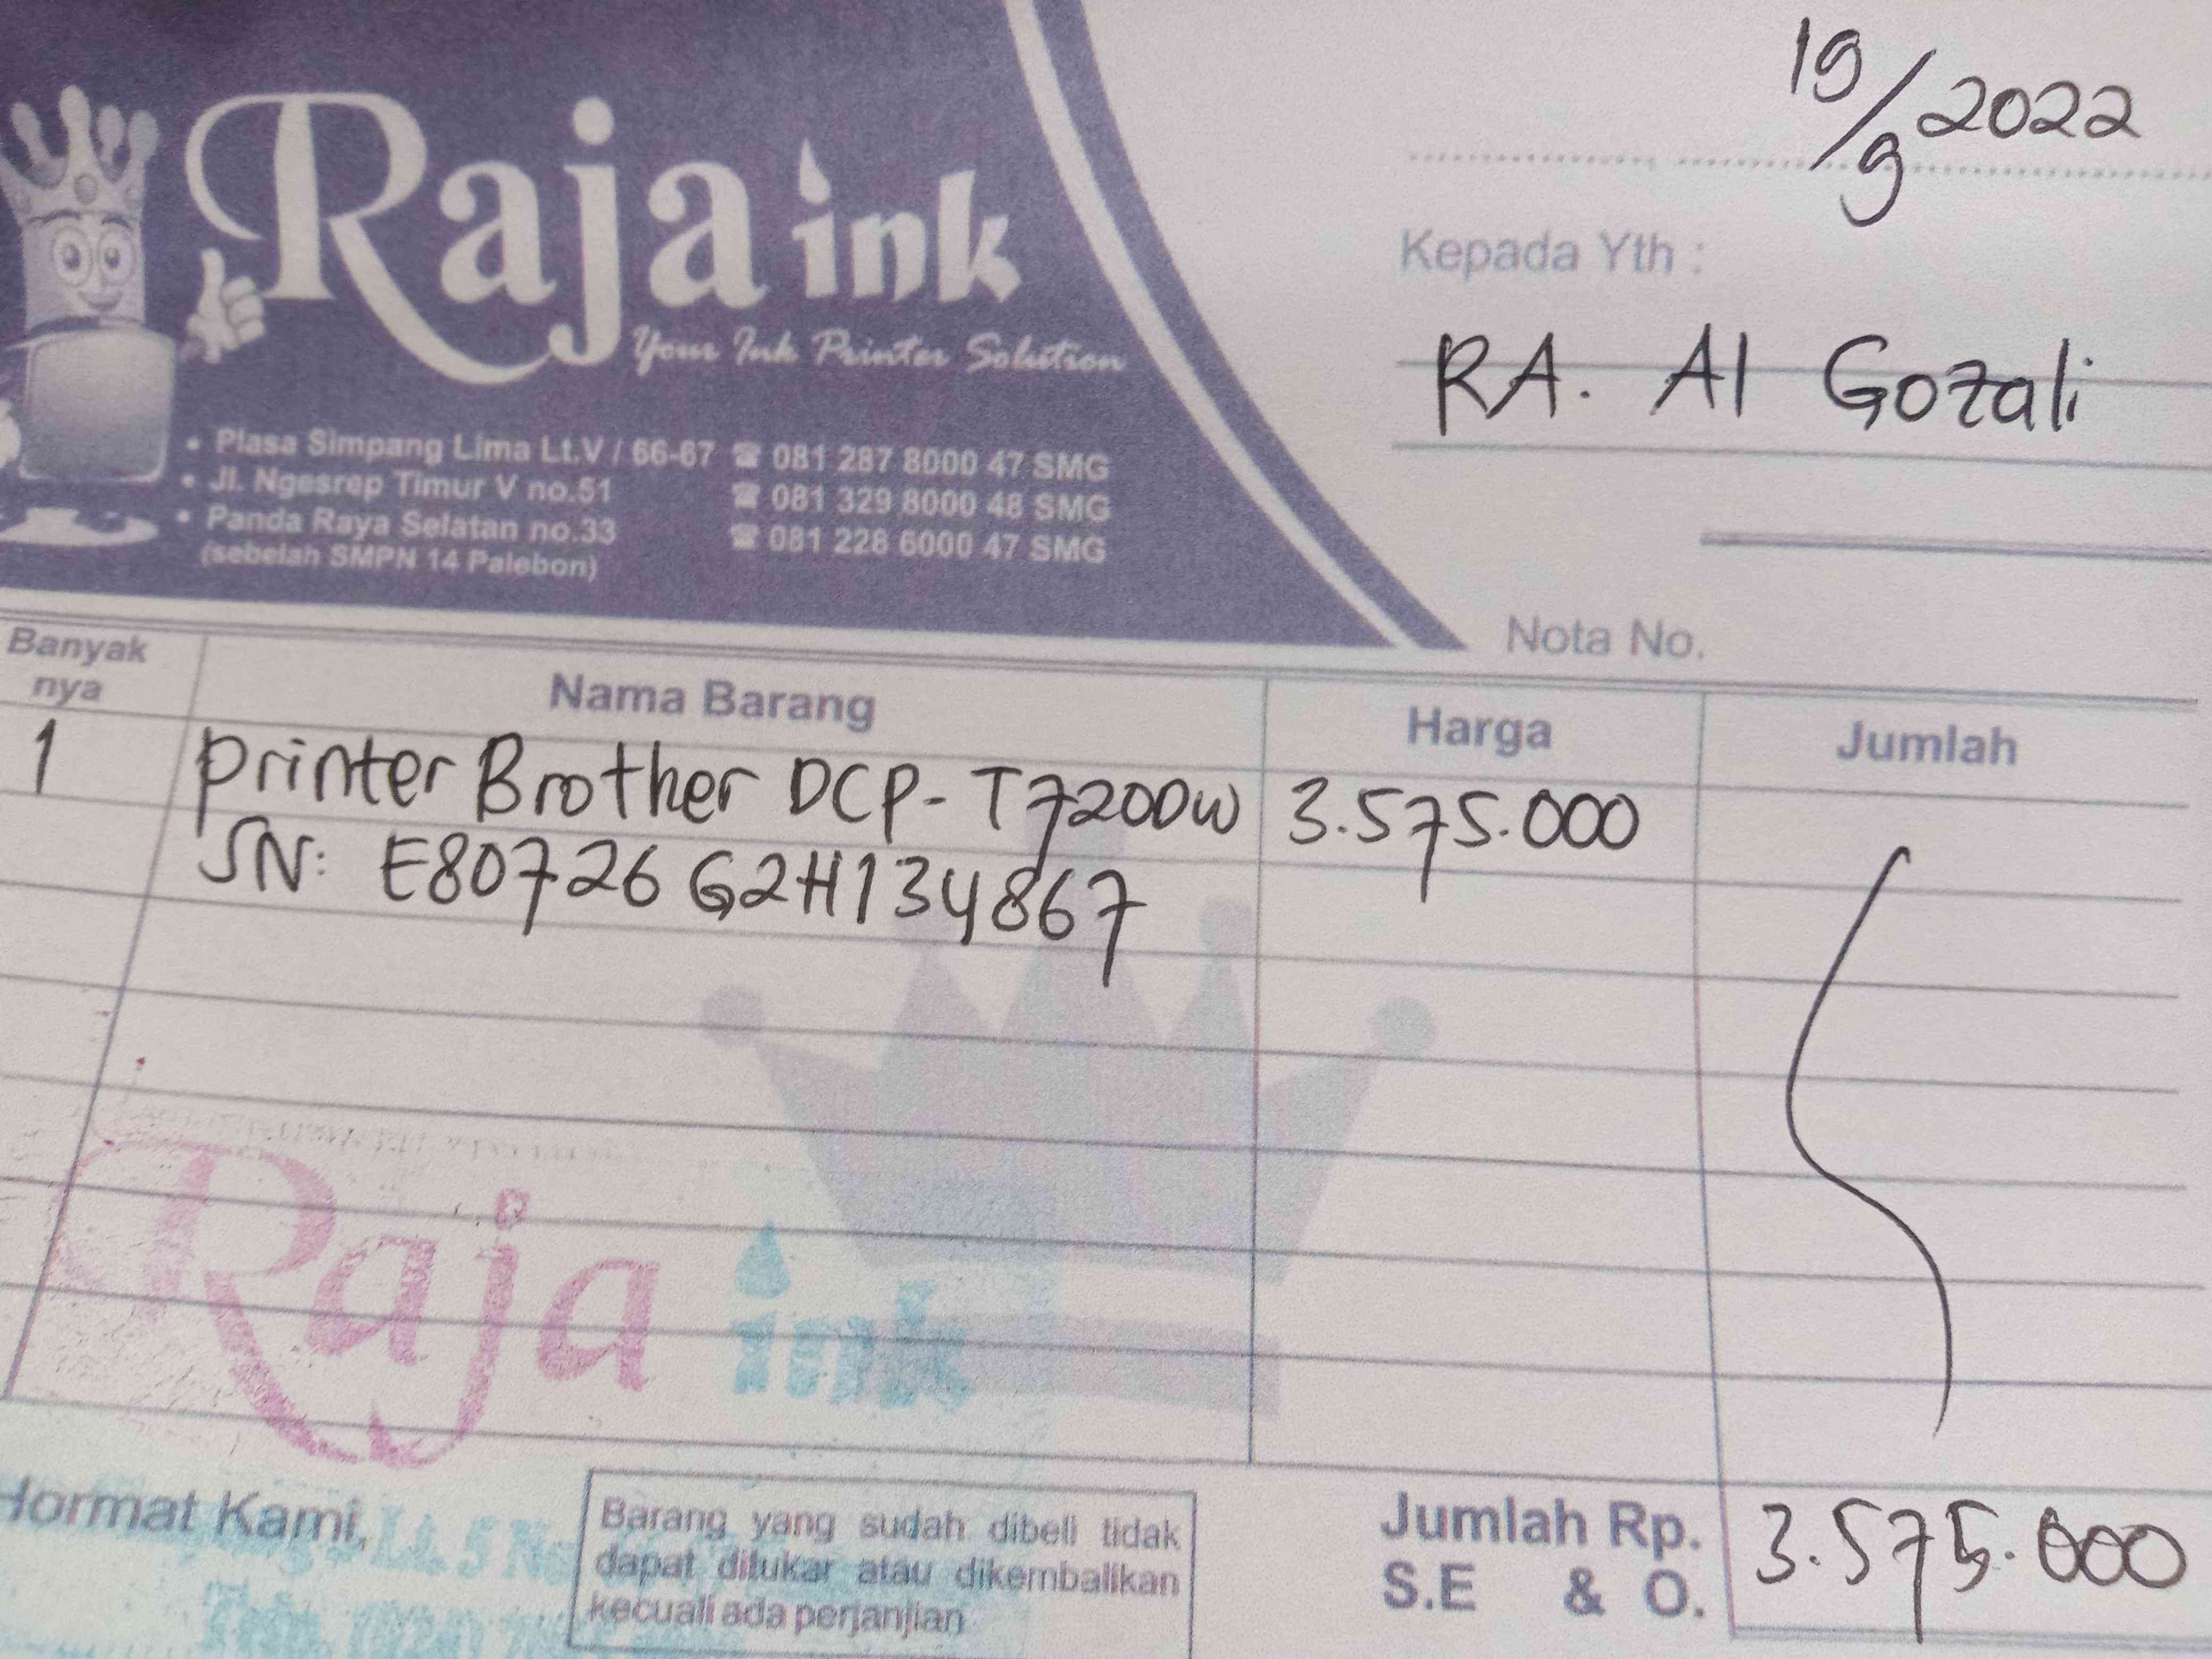 19/9 2022
Raja ink
Your Ink Printer Solution
• Plasa Simpang Lima Lt.V / 66-67 ☎ 081 287 8000 47 SMG
• Jl. Ngesrep Timur V no.51 ☎ 081 329 8000 48 SMG
• Panda Raya Selatan no.33 ☎ 081 228 6000 47 SMG
(sebelah SMPN 14 Palebon)
Kepada Yth :
RA. Al Gozali
Nota No.
Banyak
nya
Nama Barang Harga Jumlah
1 Printer Brother DCP-T720DW 3.575.000
SN: E80726G2H134867
Raja ink
Hormat Kami,
Barang yang sudah dibeli tidak
dapat ditukar atau dikembalikan
kecuali ada perjanjian
Jumlah Rp. 3.575.000
S.E & O.